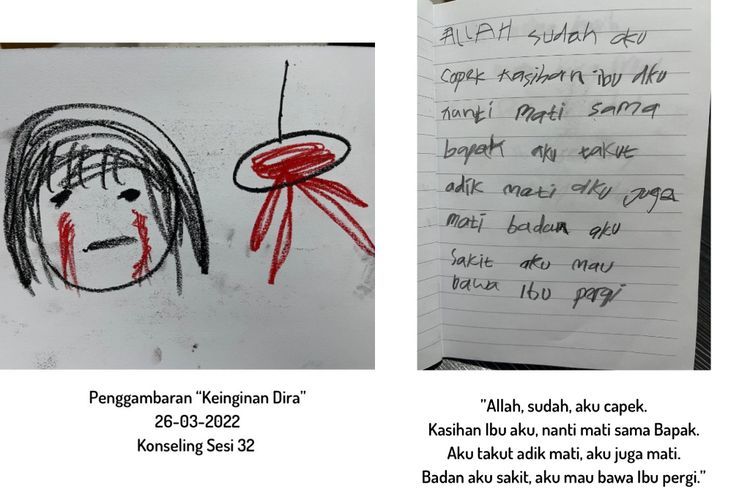 ALLAH sudah aku
capek kasihan ibu aku
nanti mati sama
bapak aku takut
adik mati aku juga
mati badan aku
sakit aku mau
bawa Ibu pergi
Penggambaran “Keinginan Dira”
26-03-2022
Konseling Sesi 32
”Allah, sudah, aku capek.
Kasihan Ibu aku, nanti mati sama Bapak.
Aku takut adik mati, aku juga mati.
Badan aku sakit, aku mau bawa Ibu pergi.”